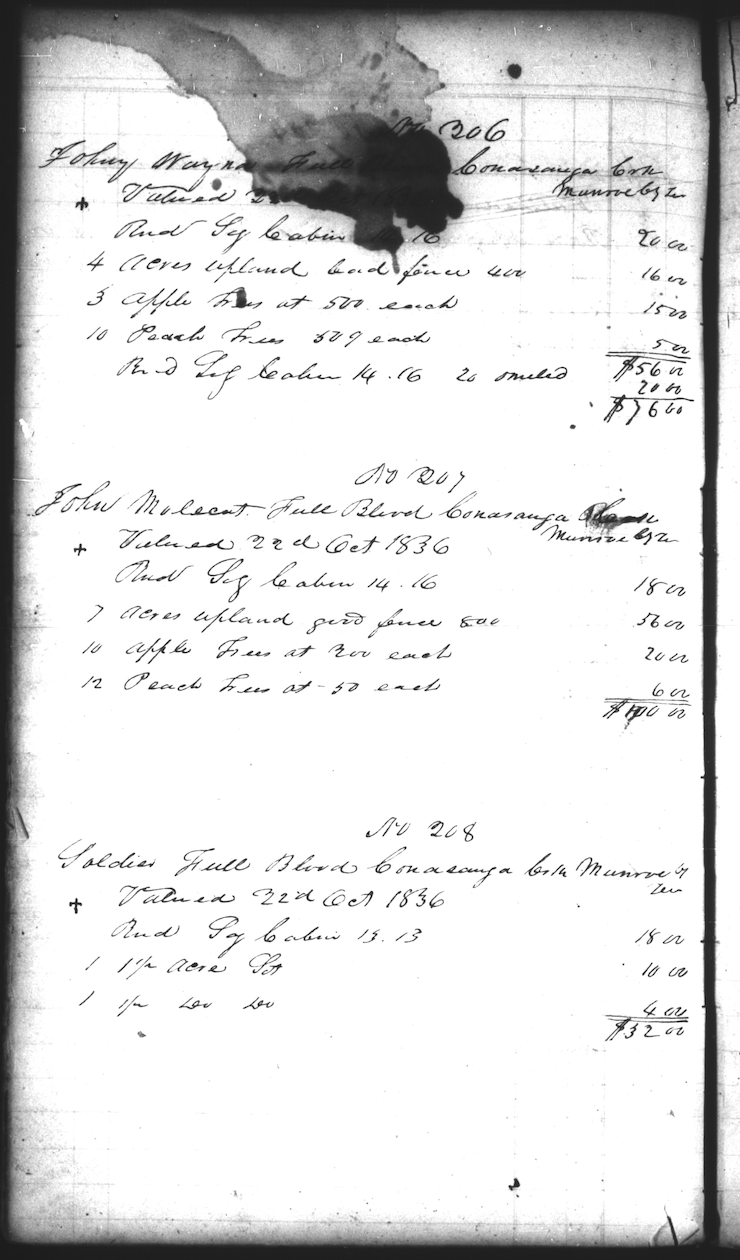 No 206
Johny Wayne Full Conasauga Crk
Munroe Cy Ten
+ Valued 22
Rnd Log Cabin 14.16 20 00
4 acres upland bad fence 400 16 00
3 apple trees at 500 each 15 00
10 Peach trees 50 each 5 00
$56 00
Rnd Log Cabin 14.16 20 omited 20 00
$76 00
No 207
John Molecat Full Blood Conasauga
Munroe Cy Ten
+ Valued 22d Oct 1836
Rnd Log Cabin 14.16 18 00
7 acres upland good fence 800 56 00
10 apple trees at 200 each 20 00
12 Peach trees at 50 each 6 00
$100 00
No 208
Soldier Full Blood Conasauga Crk Munroe Cy
Ten
+ Valued 22d Oct 1836
Rnd Log Cabin 13.13 18 00
1 1/2 acre Lot 10 00
1 1/2 Do Do 4 00
$32 00